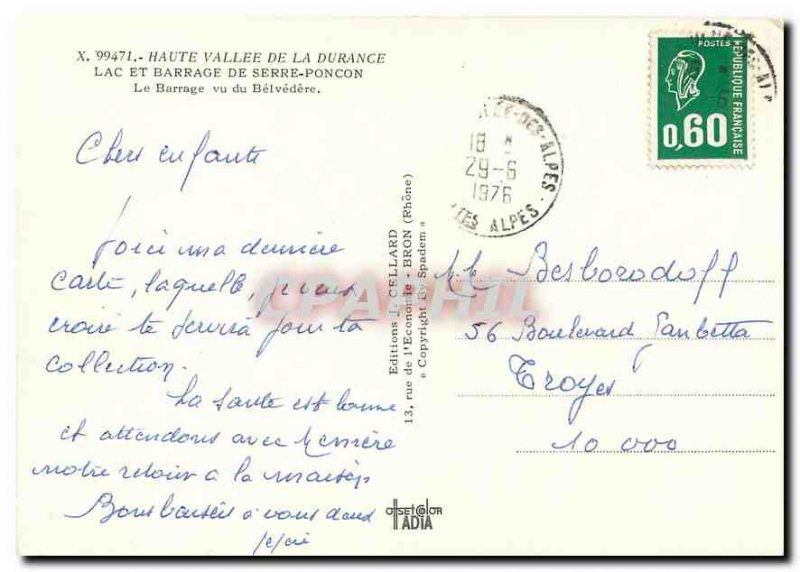 X. 99471.- HAUTE VALLEE DE LA DURANCE
LAC ET BARRAGE DE SERRE-PONCON
Le Barrage vu du Bélvédère.
Chers enfants
Voici ma dernière
carte, laquelle, je veux
croire te servira pour ta
collection.
La santé est bonne
et attendons avec
notre retour à la maison
Bons baisers à vous deux
Editions J. CELLARD
13, rue de l'Economie - BRON (Rhône)
« Copyright By Spadem »
OFFSETCOLOR
IADIA
CPAPHIL
-DES-ALPES
18 H
29-6
1976
TES ALPES
POSTES
REPUBLIQUE FRANÇAISE
0,60
Besborodoff
56 Boulevard Gambetta
Troyes
10 000